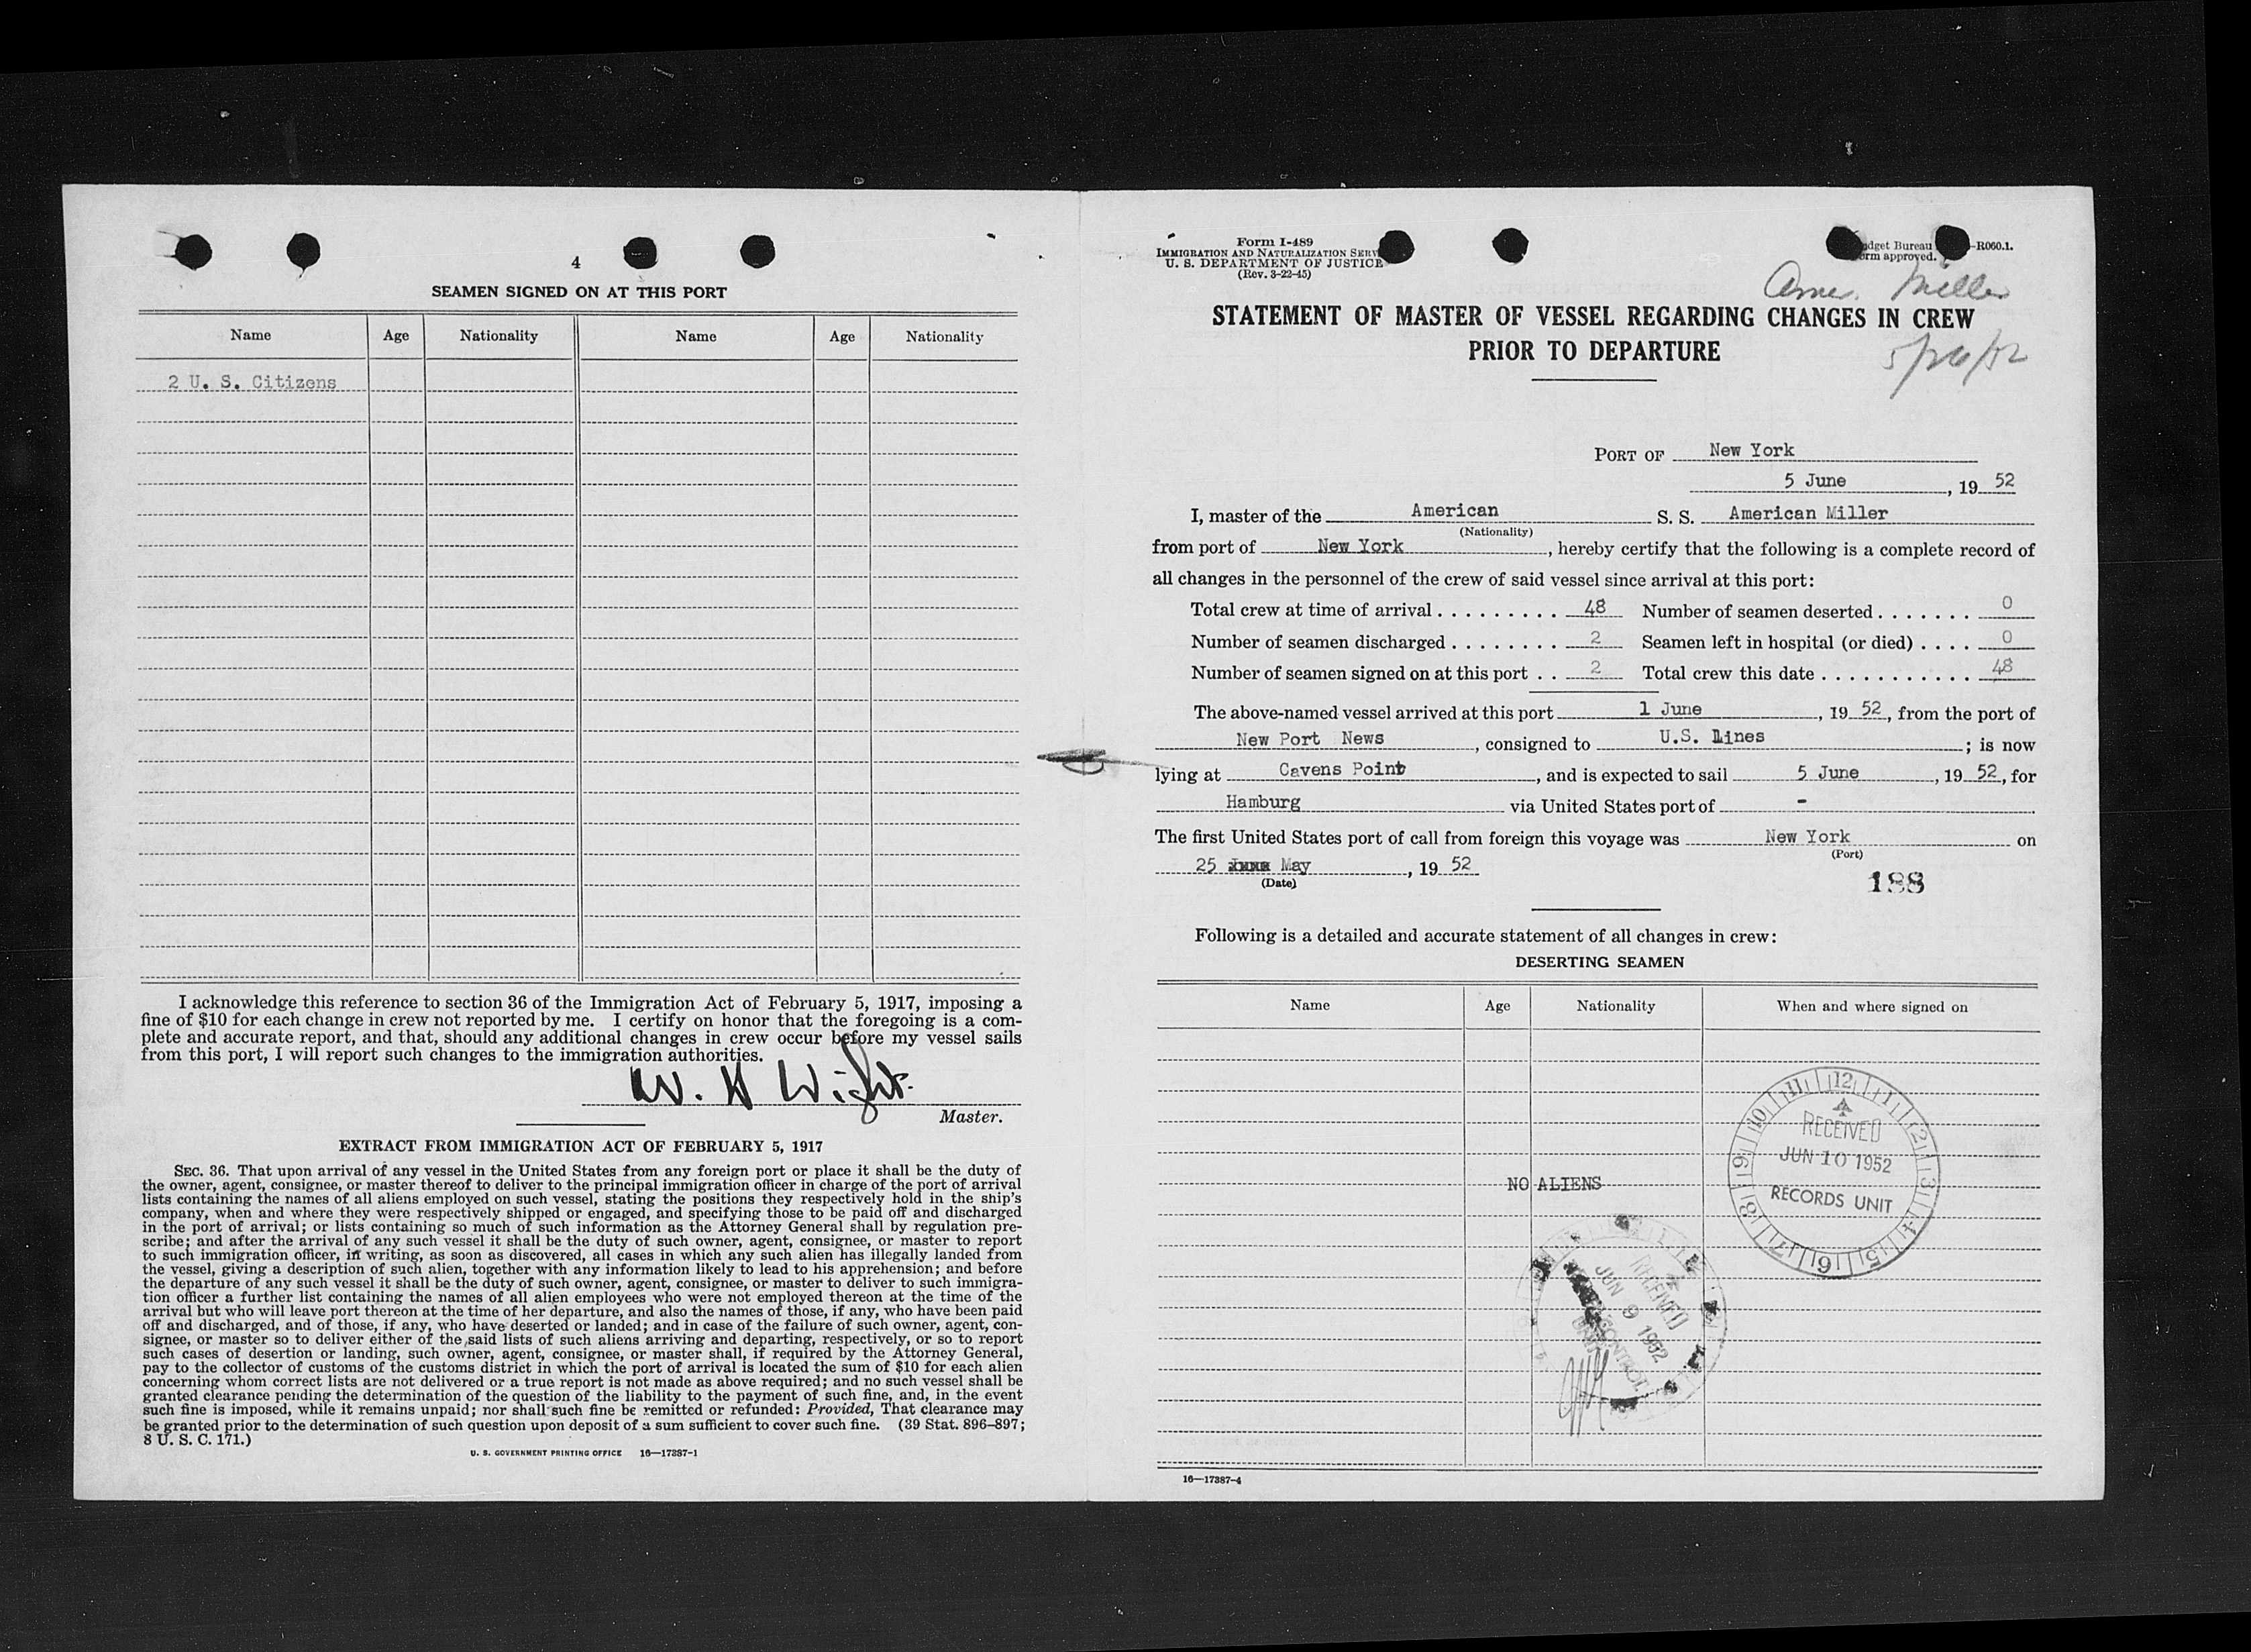 4
SEAMEN SIGNED ON AT THIS PORT
Name Age Nationality Name Age Nationality
2 U. S. Citizens
I acknowledge this reference to section 36 of the Immigration Act of February 5, 1917, imposing a
fine of $10 for each change in crew not reported by me. I certify on honor that the foregoing is a com-
plete and accurate report, and that, should any additional changes in crew occur before my vessel sails
from this port, I will report such changes to the immigration authorities.
W. H Wight
Master.
EXTRACT FROM IMMIGRATION ACT OF FEBRUARY 5, 1917
SEC. 36. That upon arrival of any vessel in the United States from any foreign port or place it shall be the duty of
the owner, agent, consignee, or master thereof to deliver to the principal immigration officer in charge of the port of arrival
lists containing the names of all aliens employed on such vessel, stating the positions they respectively hold in the ship's
company, when and where they were respectively shipped or engaged, and specifying those to be paid off and discharged
in the port of arrival; or lists containing so much of such information as the Attorney General shall by regulation pre-
scribe; and after the arrival of any such vessel it shall be the duty of such owner, agent, consignee, or master to report
to such immigration officer, in writing, as soon as discovered, all cases in which any such alien has illegally landed from
the vessel, giving a description of such alien, together with any information likely to lead to his apprehension; and before
the departure of any such vessel it shall be the duty of such owner, agent, consignee, or master to deliver to such immigra-
tion officer a further list containing the names of all alien employees who were not employed thereon at the time of the
arrival but who will leave port thereon at the time of her departure, and also the names of those, if any, who have been paid
off and discharged, and of those, if any, who have deserted or landed; and in case of the failure of such owner, agent, con-
signee, or master so to deliver either of the said lists of such aliens arriving and departing, respectively, or so to report
such cases of desertion or landing, such owner, agent, consignee, or master shall, if required by the Attorney General,
pay to the collector of customs of the customs district in which the port of arrival is located the sum of $10 for each alien
concerning whom correct lists are not delivered or a true report is not made as above required; and no such vessel shall be
granted clearance pending the determination of the question of the liability to the payment of such fine, and, in the event
such fine is imposed, while it remains unpaid; nor shall such fine be remitted or refunded: Provided, That clearance may
be granted prior to the determination of such question upon deposit of a sum sufficient to cover such fine. (39 Stat. 896–897;
8 U. S. C. 171.)
U. S. GOVERNMENT PRINTING OFFICE 16—17387-1
Form I-489
IMMIGRATION AND NATURALIZATION SERV
U. S. DEPARTMENT OF JUSTICE
(Rev. 3-22-45)
dget Bureau -R060.1.
rm approved.
Amer. Miller
STATEMENT OF MASTER OF VESSEL REGARDING CHANGES IN CREW
PRIOR TO DEPARTURE
5/26/52
PORT OF New York
5 June, 19 52
I, master of the American S. S. American Miller
(Nationality)
from port of New York, hereby certify that the following is a complete record of
all changes in the personnel of the crew of said vessel since arrival at this port:
Total crew at time of arrival . . . . . . . . . 48 Number of seamen deserted . . . . . . . 0
Number of seamen discharged . . . . . . . . 2 Seamen left in hospital (or died) . . . . 0
Number of seamen signed on at this port . . 2 Total crew this date . . . . . . . . . . . 48
The above-named vessel arrived at this port 1 June, 19 52, from the port of
New Port News, consigned to U.S. Lines; is now
lying at Cavens Point, and is expected to sail 5 June, 19 52, for
Hamburg via United States port of -
The first United States port of call from foreign this voyage was New York on
(Port)
25 May, 19 52
(Date)
188
Following is a detailed and accurate statement of all changes in crew:
DESERTING SEAMEN
Name Age Nationality When and where signed on
NO ALIENS
12 1 2 3 4 5 6 7 8 9 10 11
RECEIVED
JUN 10 1952
RECORDS UNIT
RECEIVED
JUN 9 1952
16—17387-4